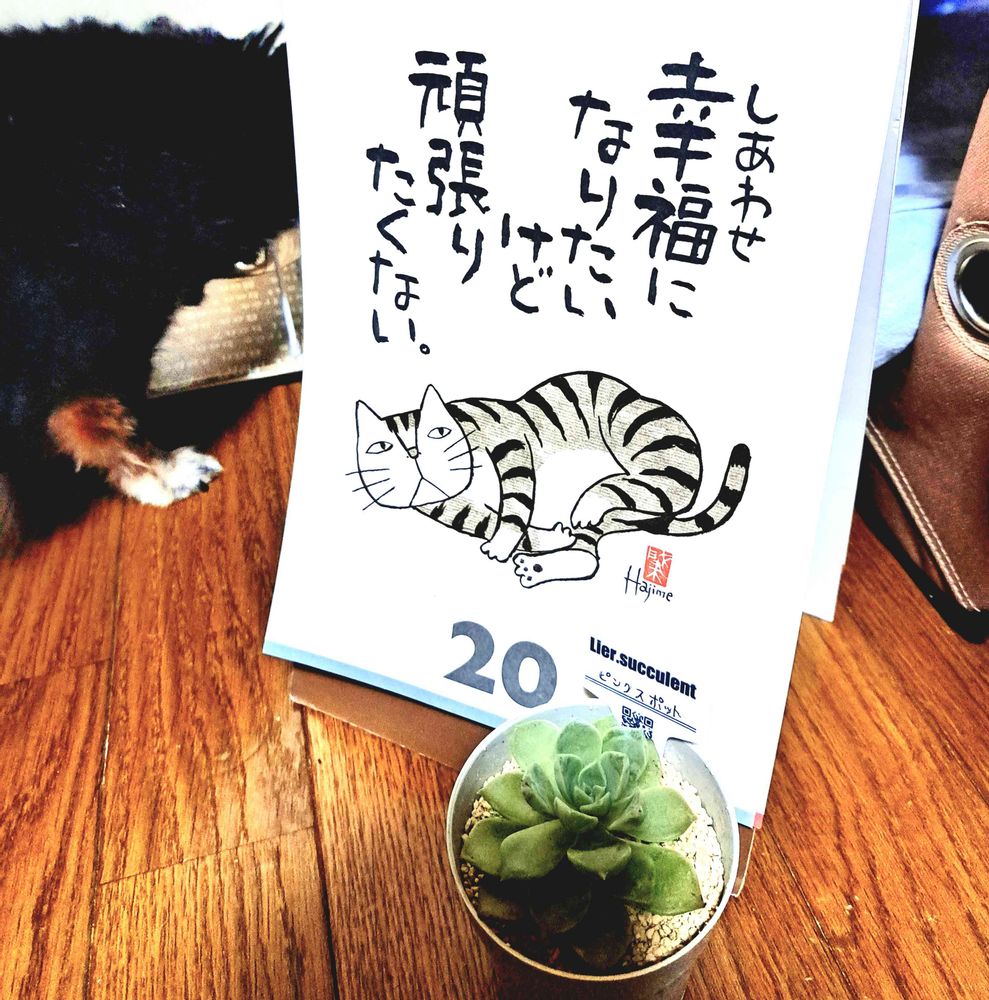 しあわせ
幸福に
なりたい
けど
頑張り
たくない。
誠
Hajime
20
Lier.succulent
ピンクスポット